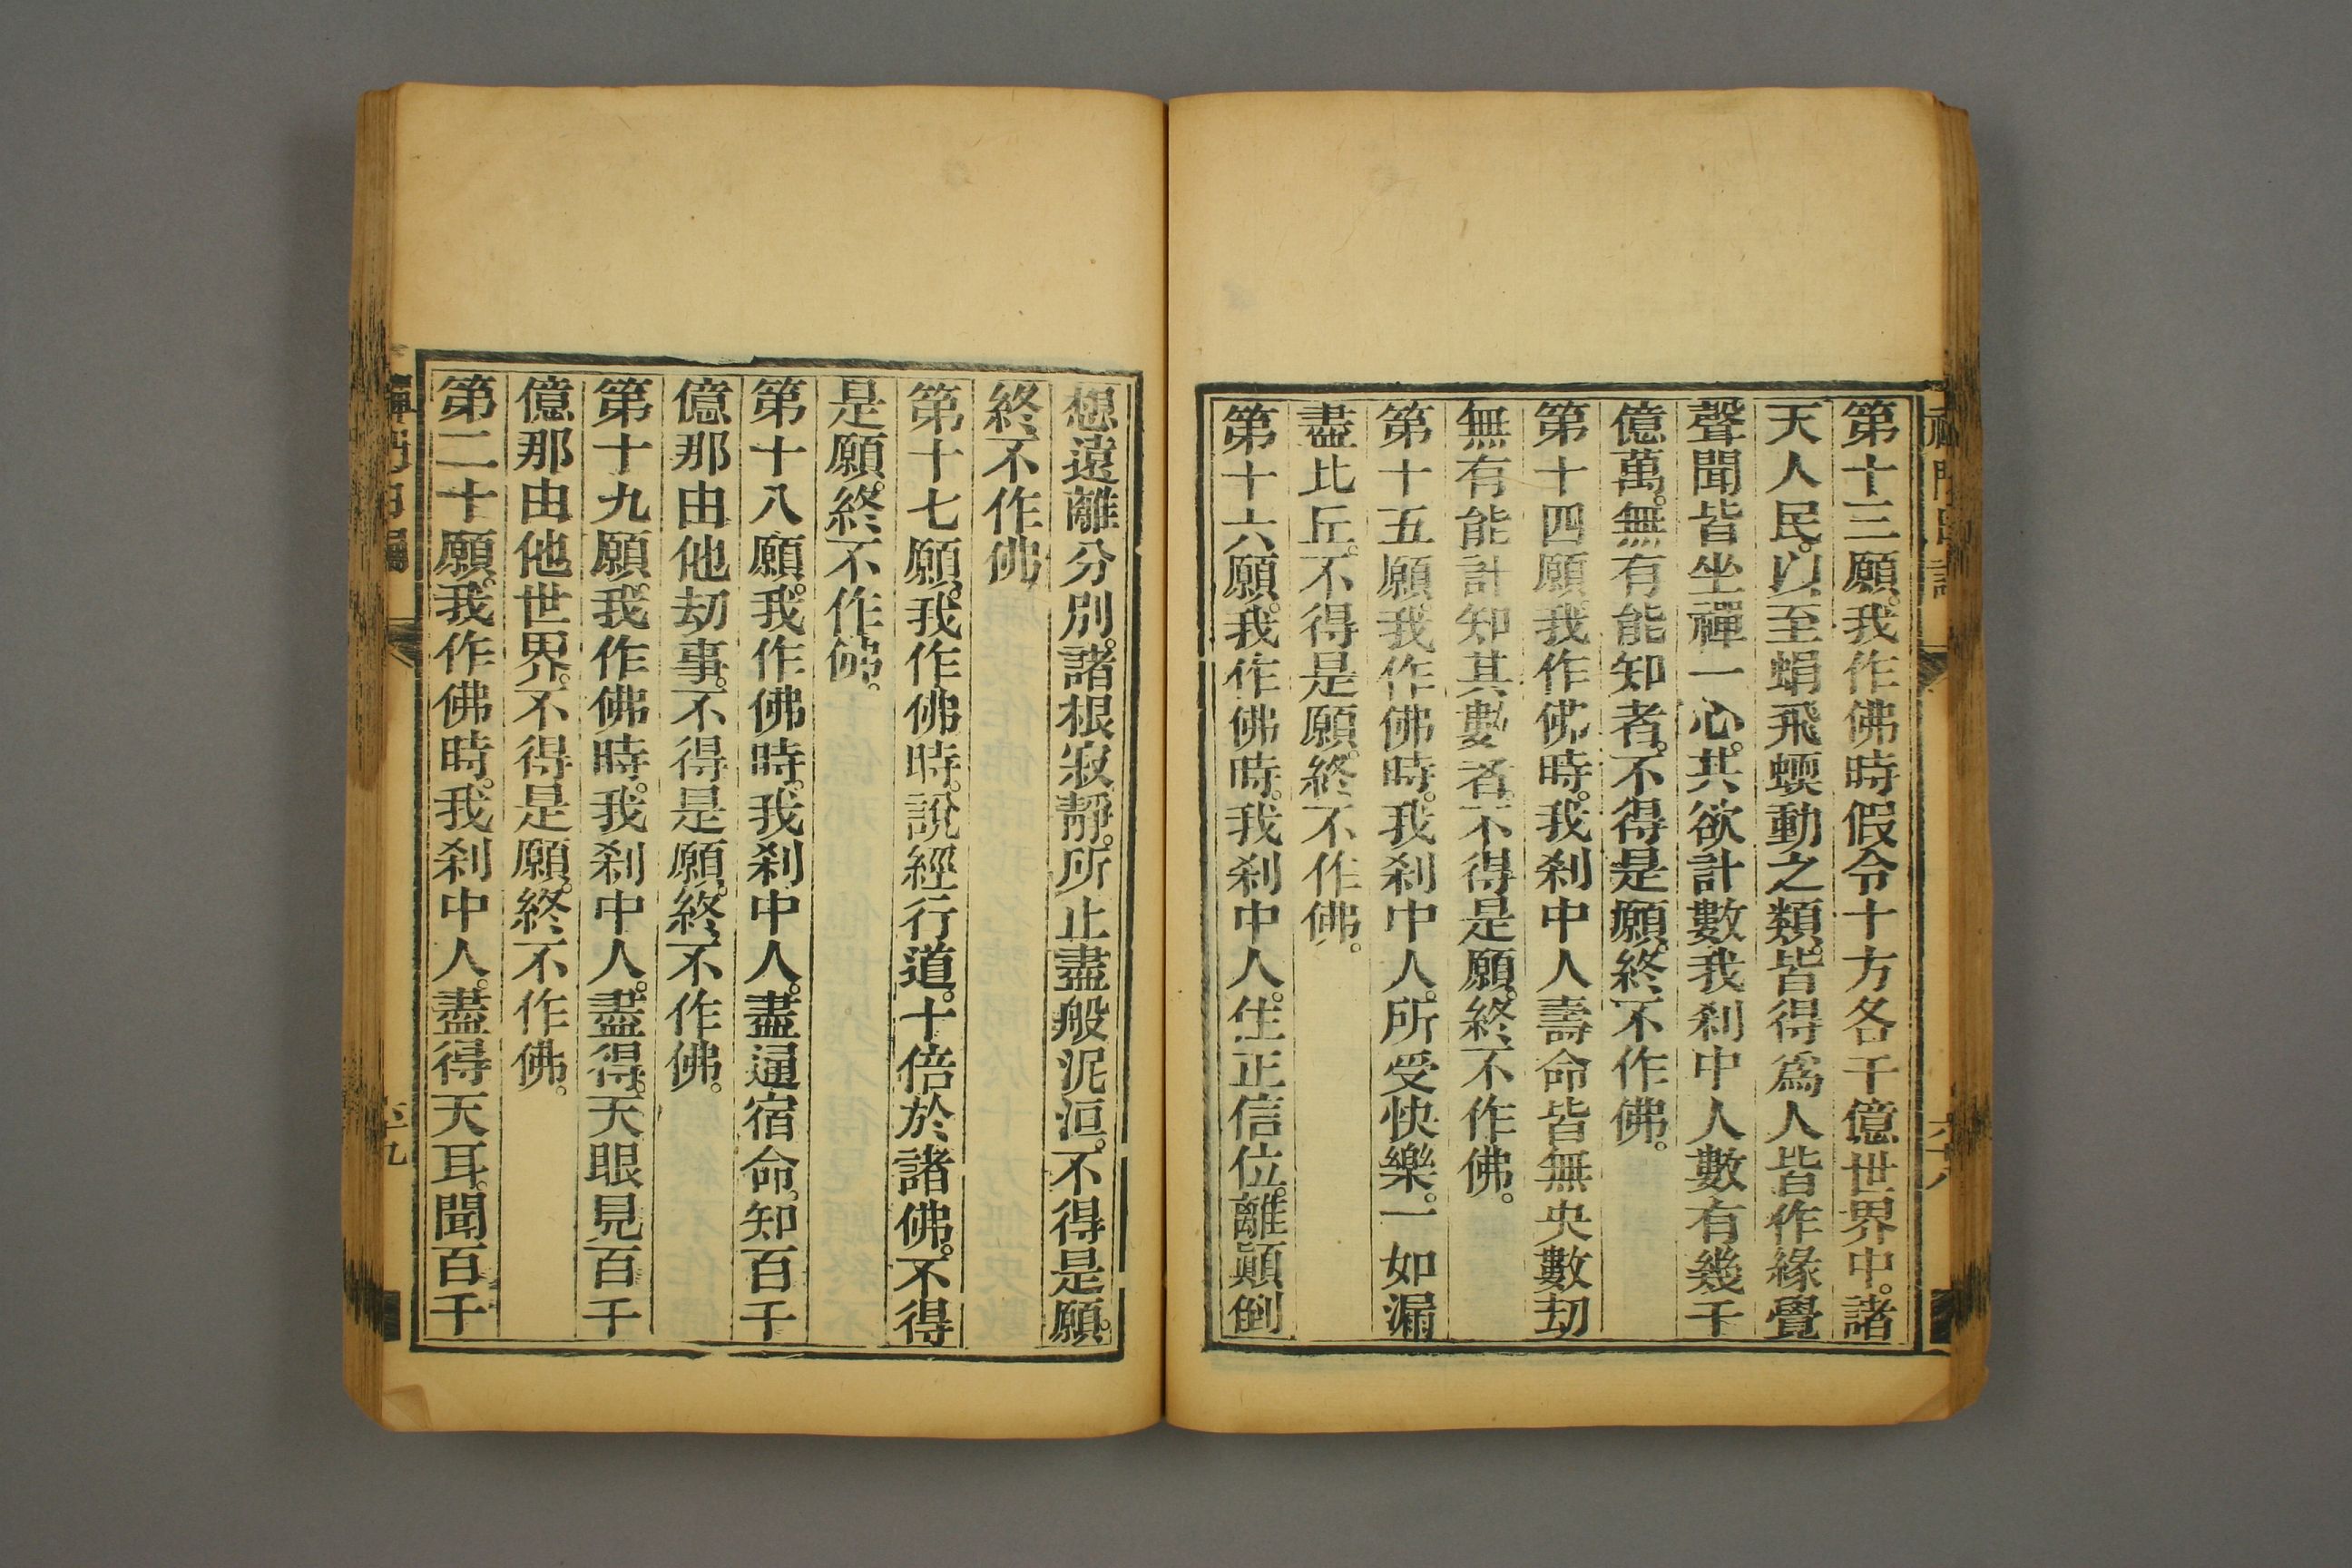 第十三願。我作佛時假令十方各千億世界中。諸
天人民。以至蜎飛蝡動之類。皆得爲人皆作緣覺
聲聞皆坐禪一心。共欲計數我刹中人數有幾千
億萬。無有能知者。不得是願。終不作佛。
第十四願。我作佛時。我刹中人壽命皆無央數劫
無有能計知其數者。不得是願。終不作佛。
第十五願。我作佛時。我刹中人。所受快樂。一如漏
盡比丘。不得是願。終不作佛。
第十六願。我作佛時。我刹中人。住正信位。離顚倒
想遠離分別。諸根寂靜。所止盡般泥洹。不得是願。
終不作佛
第十七願。我作佛時。說經行道。十倍於諸佛。不得
是願。終不作佛。
第十八願。我作佛時。我刹中人。盡通宿命。知百千
億那由他劫事。不得是願。終不作佛。
第十九願。我作佛時。我刹中人。盡得。天眼見百千
億那由他世界。不得是願。終不作佛。
第二十願。我作佛時。我刹中人。盡得天耳。聞百千